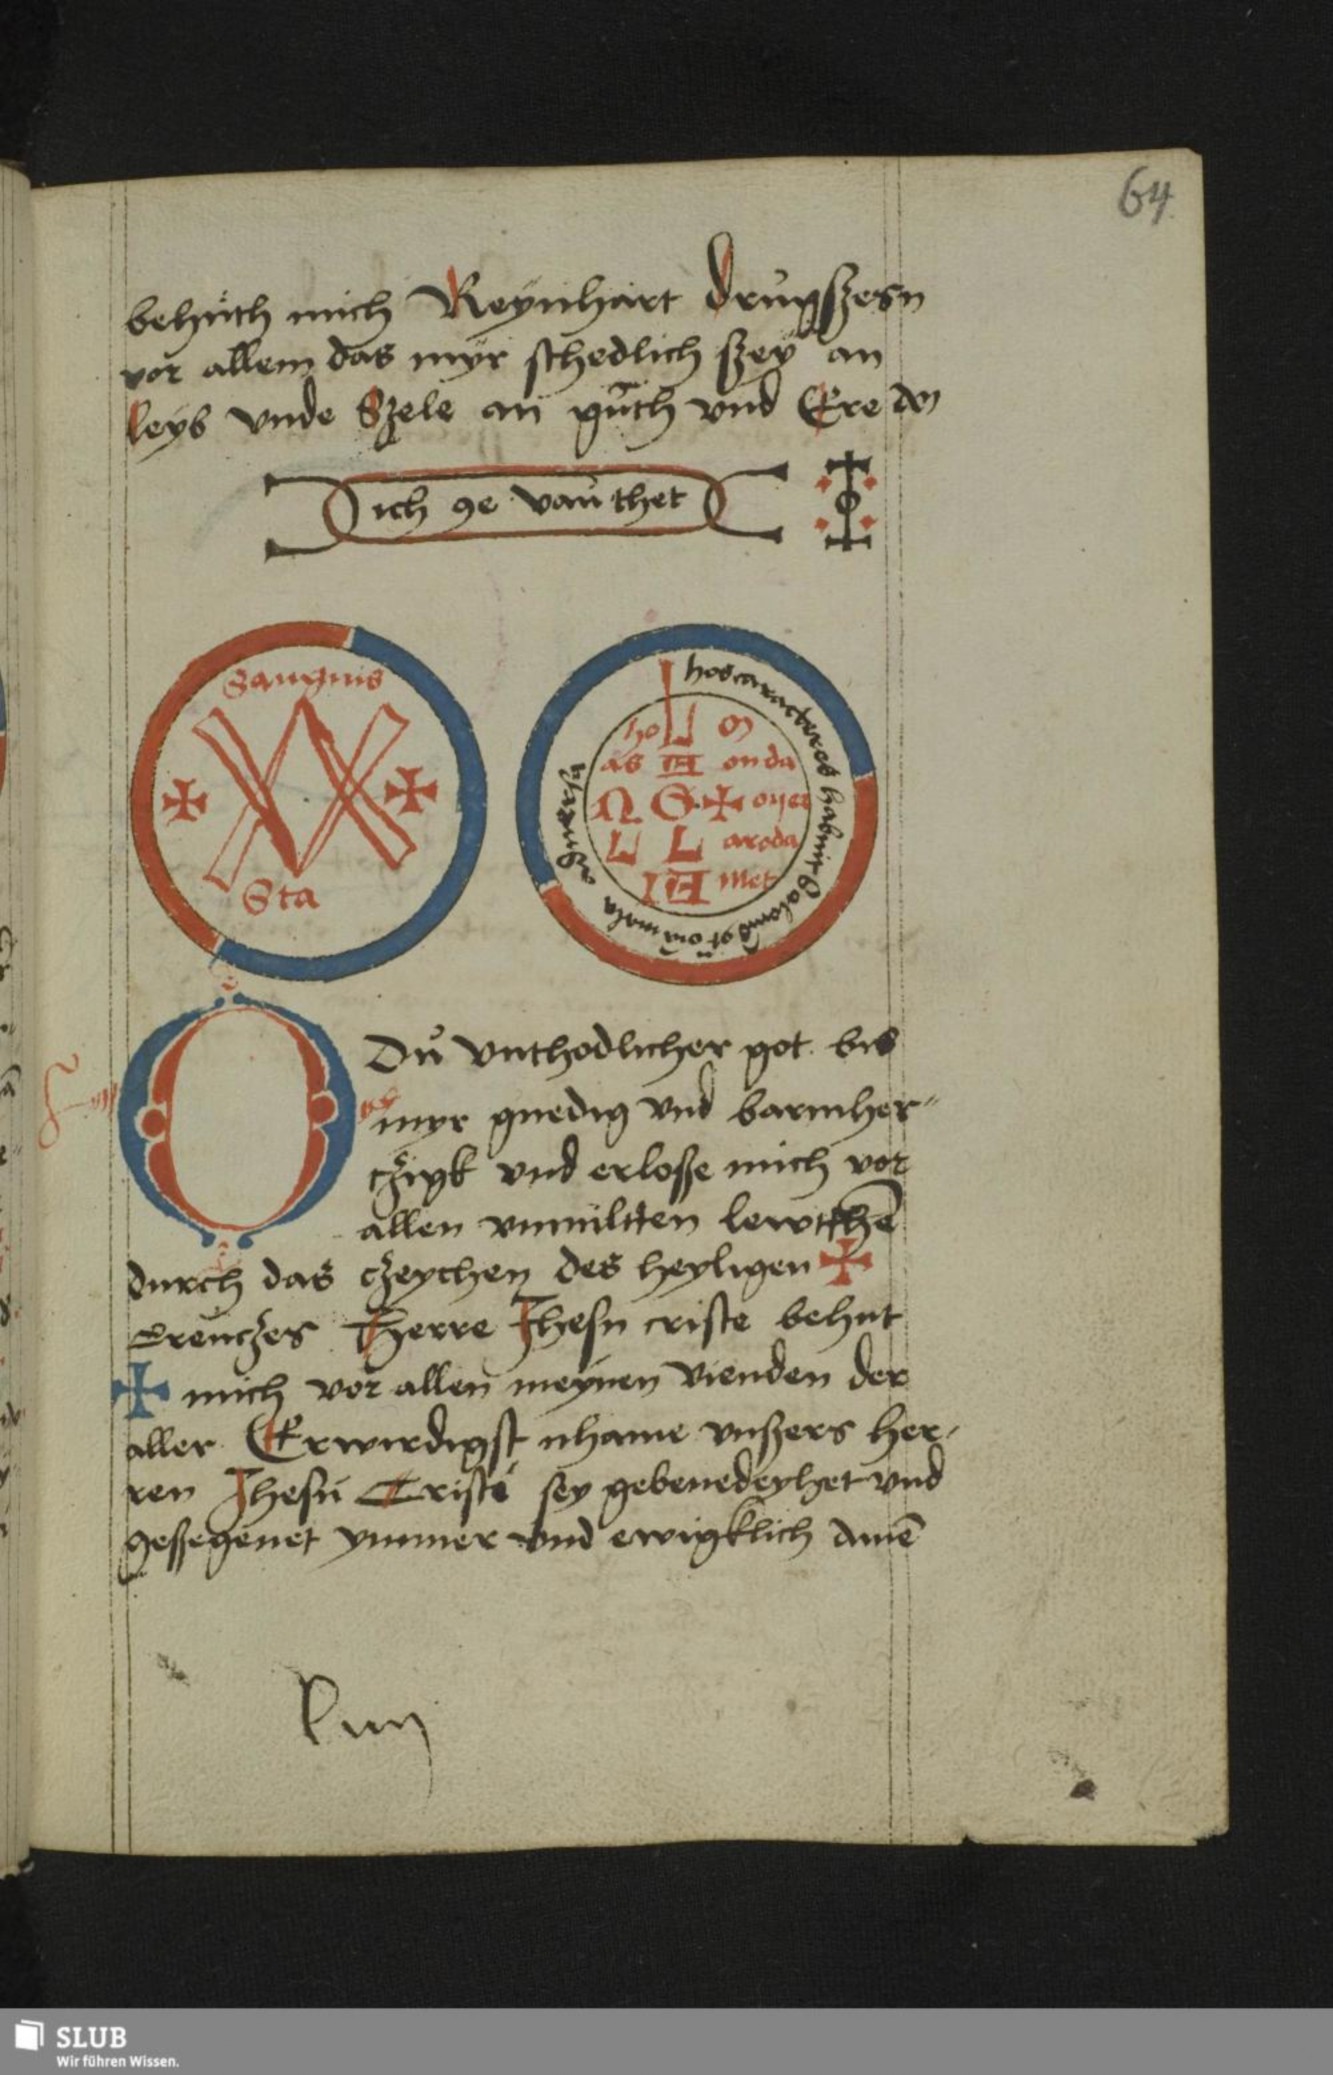 64
behuth mich Reynhart drugszesn
vor allem das myr schedlich szey an
leyb vnde Szele an guth vnd Ere
ich ge vauthet
Sangnis
Sta
hos caracteres habuit et oīa mala
ho m
as onda
Ω S
L L aroda
met
O Du vnthodlicher got bis
myr gnedig vnd barmher-
czigk vnd erlosze mich vor
allen vnmiltten lewthē
durch das czeychen des heyligen
Creuczes Herre Jhesu criste behut
mich vor allen meynen vienden der
aller Erwirdigst nhame vnszers her-
ren Jhesu Cristi sey gebenedeyhet vnd
geszegenet ymmer vnd ewigklich Amē
SLUB
Wir führen Wissen.